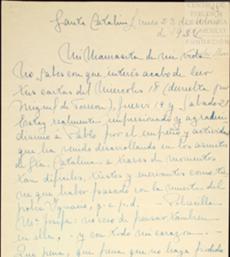 Santa Catalina, lunes 23 de
de 193
Mi Mamasita de mi vida:
No sabes con que interés acabo de leer
tus cartas del Miercoles 18 (devuelta por
Miguel de Torreon), jueves 19 y Sabado 21.
Estoy realmente impresionado y agrade-
cidisimo a Pablo por el empeño y actividad
que ha venido desarrollando en los asuntos
de Sta. Catalina a traves de momentos
tan dificiles, tristes y como
que haber pasado con la muerte del
pobre q.e.p.d.
Ma. Josefa: no ceso de pensar tambien
en ella, y con todo mi corazon.
Que pena, que pena que no haya podido